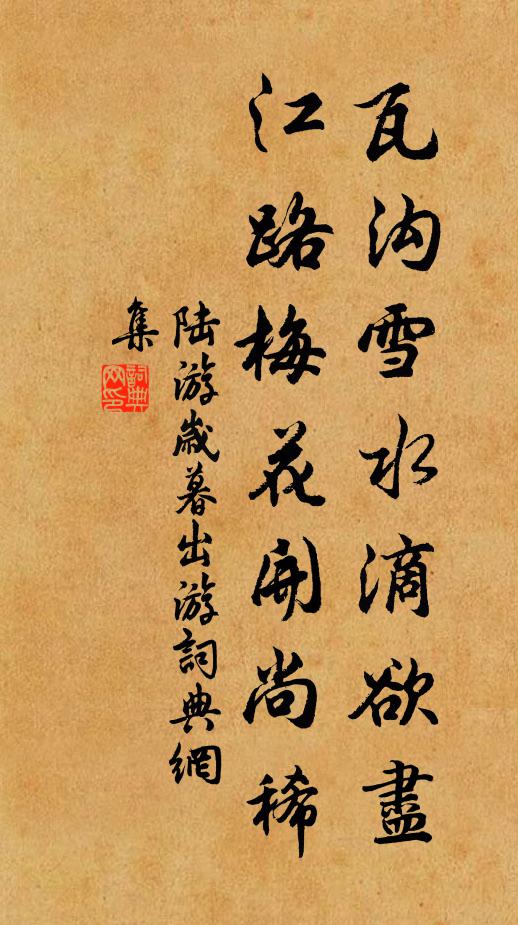 瓦沟雪水滴欲盡
江路梅花開尚稀
陆游歲暮出游詞典網
集
詞典
网印